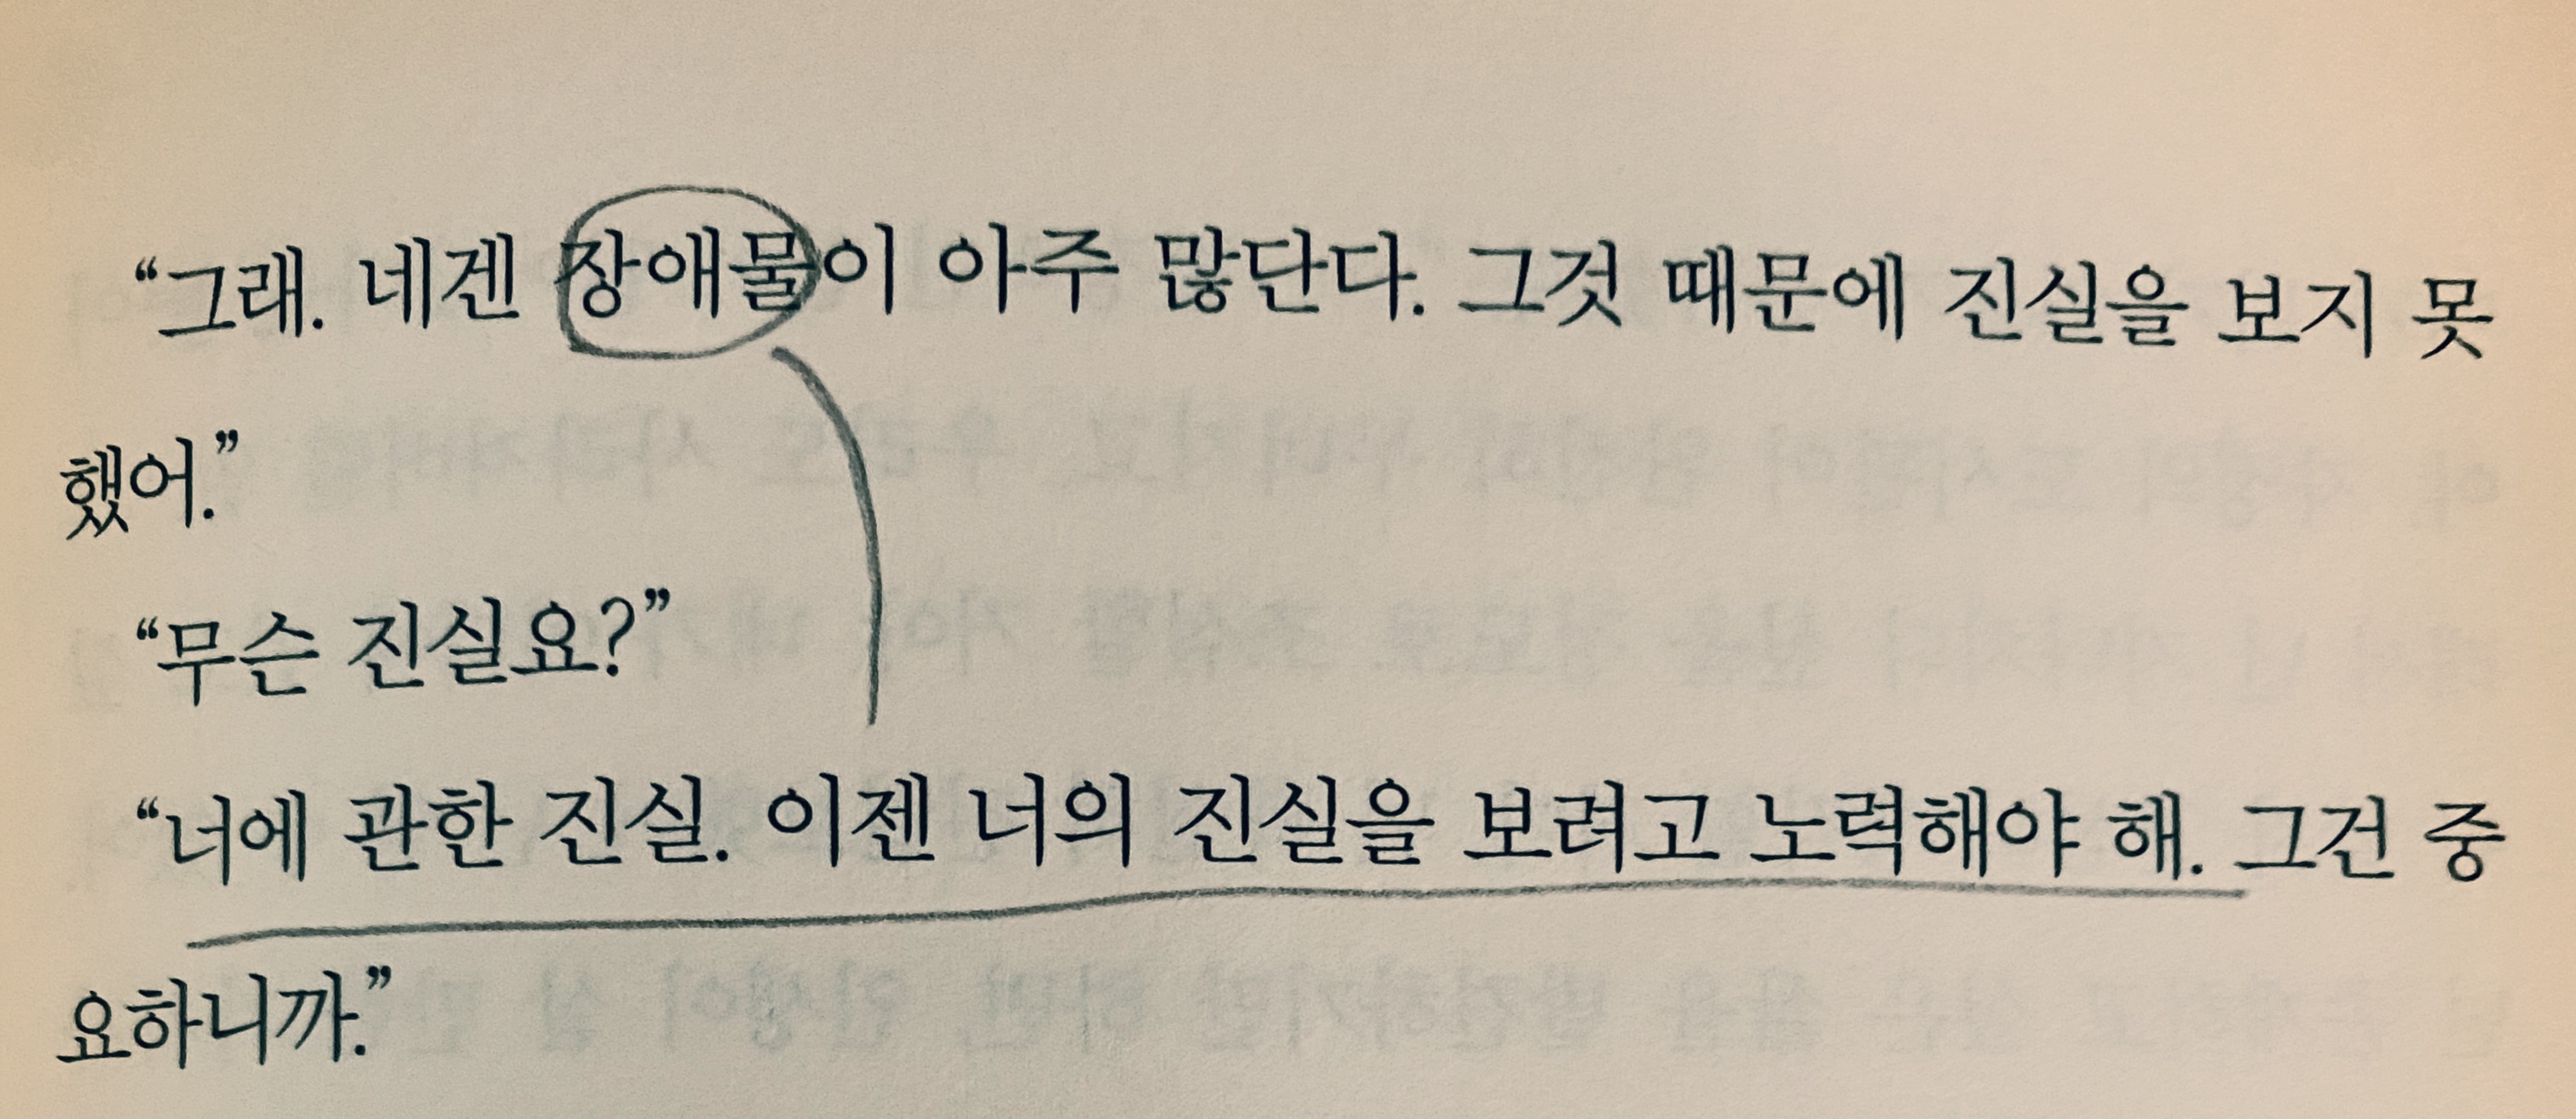 “그래. 네겐 장애물이 아주 많단다. 그것 때문에 진실을 보지 못
했어.”
“무슨 진실요?”
“너에 관한 진실. 이젠 너의 진실을 보려고 노력해야 해. 그건 중
요하니까.”